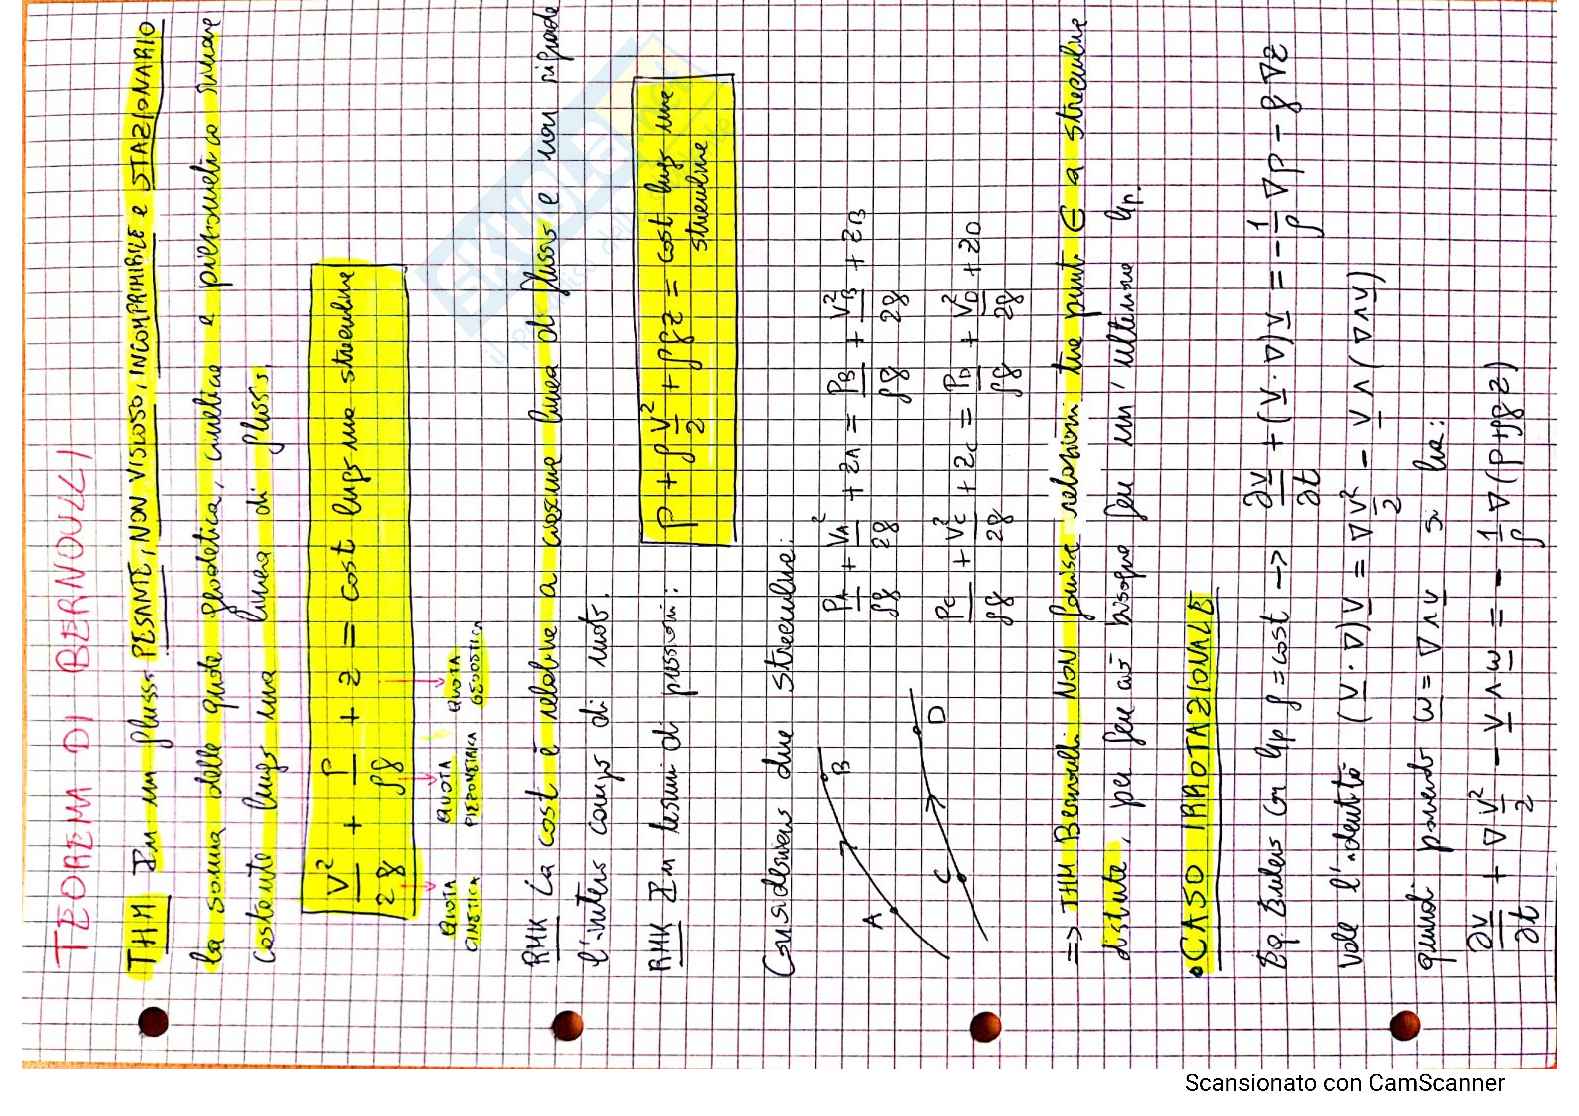 TEOREMA DI BERNOULLI
THM In un flusso PESANTE, NON VISCOSO, INCOMPRIMIBILE e STAZIONARIO
la somma delle quote geodetica, cinetica e piezometrica rimane
costante lungo una linea di flusso.
V²/2g + P/ρg + z = cost lungo una streamline
QUOTA CINETICA
QUOTA PIEZOMETRICA
QUOTA GEODETICA
RMK La cost è relativa a ciascuna linea di flusso e non riguarda
l'intero campo di moto.
RMK In termini di pressioni: P + ρ V²/2 + ρgz = cost lungo una streamline
Consideriamo due streamline:
A B
C D
PA/ρg + VA²/2g + zA = PB/ρg + VB²/2g + zB
PC/ρg + VC²/2g + zC = PD/ρg + VD²/2g + zD
=> THM Bernoulli NON fornisce relazioni tra punti ∈ a streamline
distinte, per fare ciò bisogna fare un'ulteriore Hp.
• CASO IRROTAZIONALE
Eq. Eulero con Hp ρ = cost -> ∂v/∂t + (v · ∇)v = - 1/ρ ∇P - g∇z
Vale l'identità (v · ∇)v = ∇ v²/2 - v ∧ (∇ ∧ v)
quindi ponendo ω = ∇ ∧ v si ha:
∂v/∂t + ∇ v²/2 - v ∧ ω = - 1/ρ ∇(P+ρgz)
SKUOLA
Scansionato con CamScanner